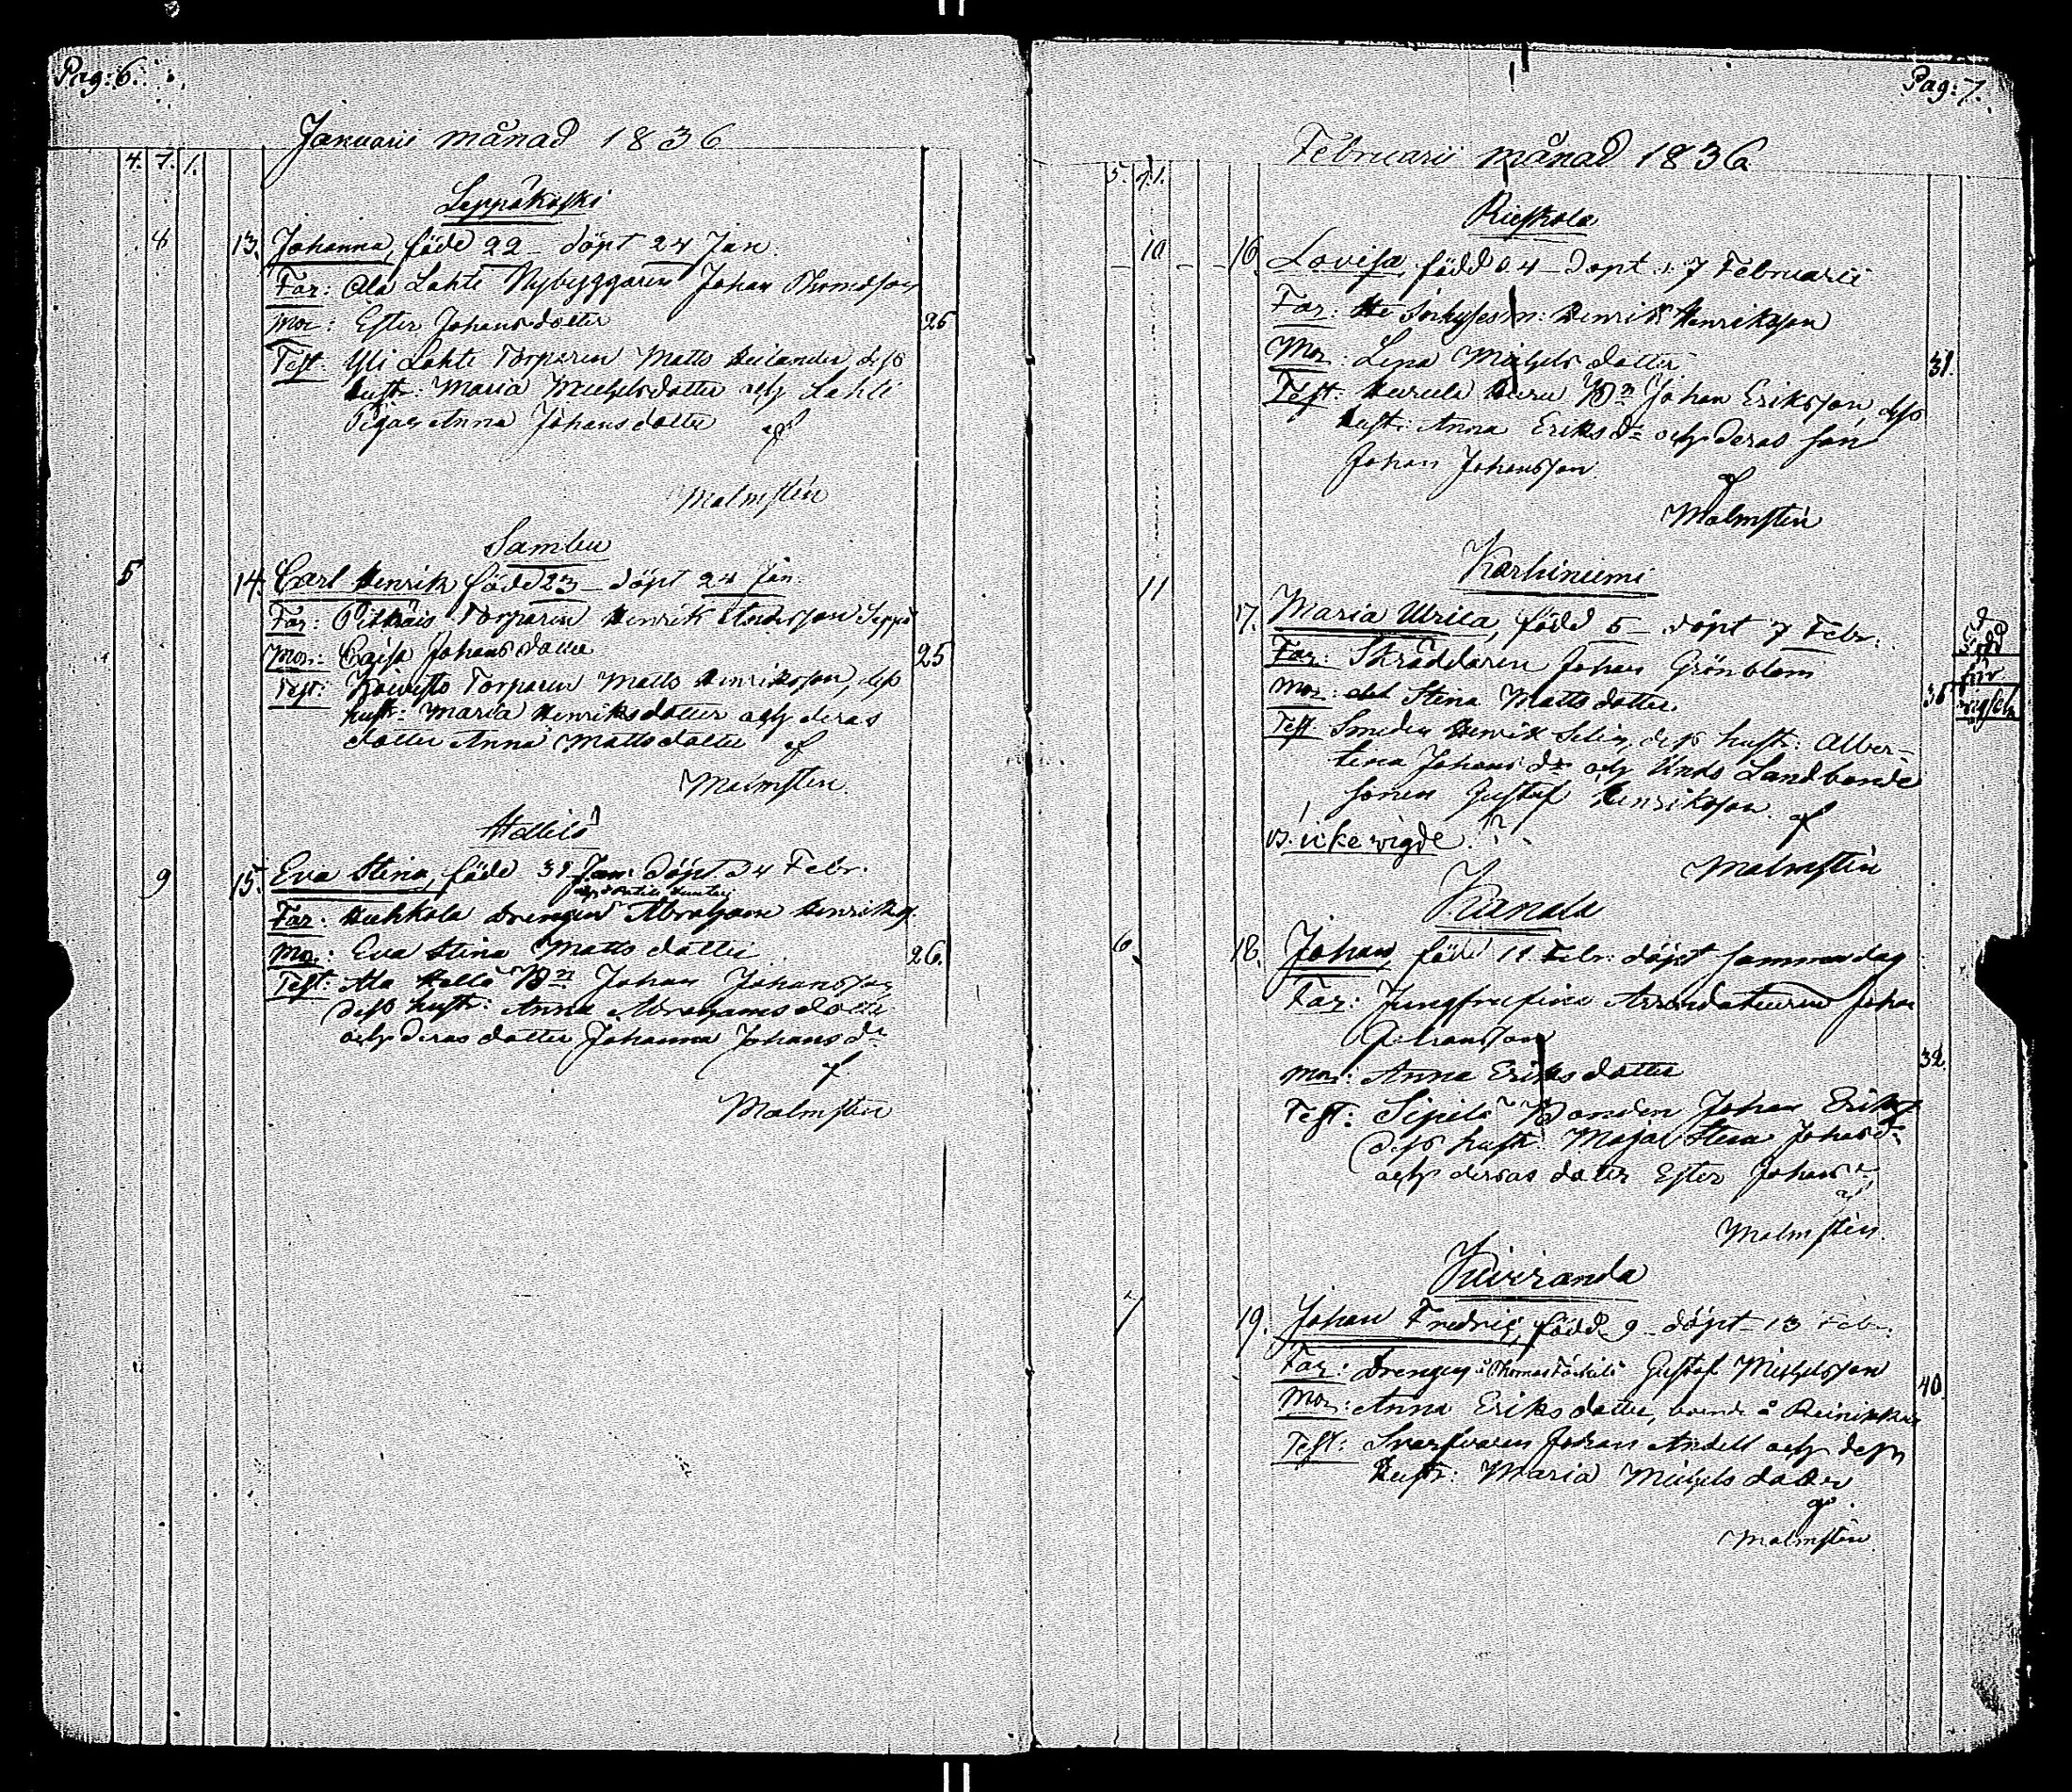 Pag: 6.
Januarii månad 1836
4. 7. 1.
Leppäkoski
8 13. Johanna, född 22 döpt 24 Jan.
Far: Ala Lahti Nybyggaren Johan Thomasson
Mor: Ester Johansdotter 26
Test: Yli Lahti Torparen Matts Heilander dess
hustr: Maria Michelsdotter och Lahti
Pigan Anna Johansdotter af
Malmstén
Sambu
5 14. Carl Henrik född 23 döpt 24 Jan.
Far: Torparen Henrik Andersson Seppä
Mor: Cajsa Johansdotter 25
Test: Koivisto Torparen Matts Henriksson, dess
hustr: Maria Henriksdotter och deras
dotter Anna Mattsdotter af
Malmstén
9 15. Eva Stina, född 31 Jan: döpt d 4 Febr.
Far: Drengen Abraham Henriks.
Mor: Eva Stina Mattsdotter 26.
Test: Ala Johan Johansson
dess hustr: Anna Abrahamsdotter
och deras dotter Johanna Johans dr
af
Malmstén
Pag: 7.
Februarii månad 1836
5. 7. 1.
Rieskala
10 16. Lovisa, född d. 4 döpt d. 7 Februarii
Far: Henrik Henriksson
Mor: Lena Michels dotter 31.
Test: Johan Eriksson, dess
hustr: Anna Eriks dr och deras son
Johan Johansson
af
Malmstén
Karhiniemi
11 17. Maria Ulrica, född 5 döpt 7 Febr.
Far: Skräddaren Johan Grönblom
Mor: Stina Matts dotter 36
född
för
vigseln
Test Smeden Henrik Selin, dess hustr: Alber-
tina Johans dr och Landbonde
sonen Gustaf Henriksson. af
icke vigde.
Malmstén
6 18. Johan, född 11 Febr: döpt samma dag
Far: Arrendatoren Johan
Mor: Anna Eriks dotter 32
Test: Sipilä Bonden Johan Eriks.
dess hustr: Maja Stina Johans dr
och deras dotter Ester Johans dr
af
Malmstén
Kiviranda
7 19. Johan Fredric, född 9 döpt 13 Febr.
Far: Drengen Gustaf Michelsson
Mor: Anna Eriks dotter, boende å 40
Test: Svarfvaren Johan Andell och dess
Hustr: Maria Michels dotter
af
Malmstén